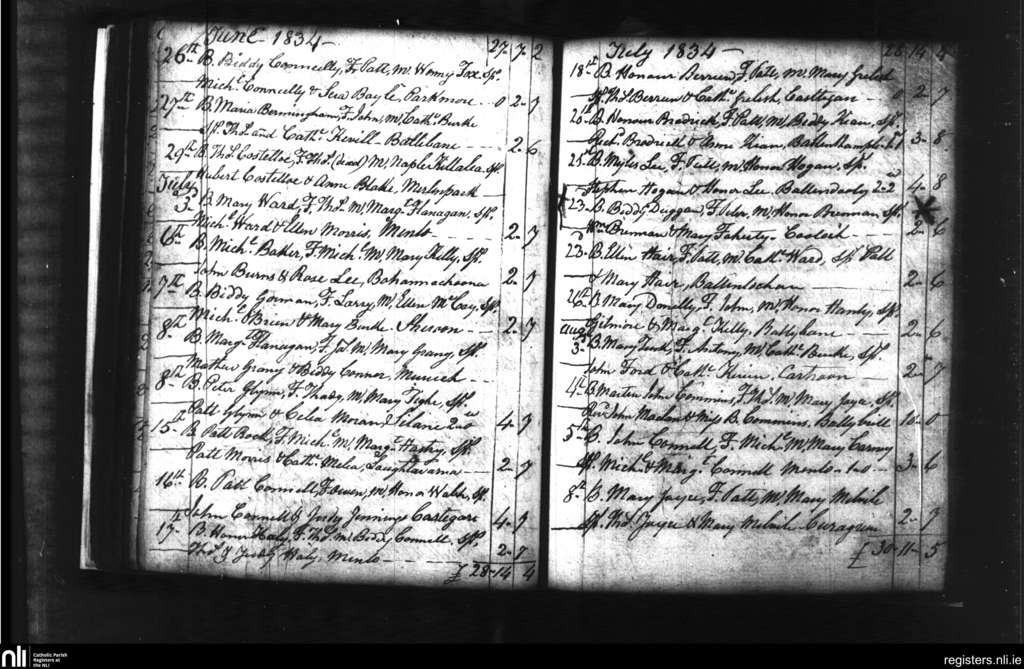 June 1834 27 7 2
26th B. Biddy Connelly, F. Patt, M. Wenny Fox, Sp.
Mich. Connelly & Boyle, Parkmore 0 2 7
27th B. Maria Bermingham, F. John, M. Cath. Burke
Sp. Thos. and Cath. Kevill. Batlebane 2 6
29th B. Thos. Costelloe, F. Thos. (dead) M. Naple Killalea, Sp.
Hubert Costelloe & Anne Blake, Merlinpark
July
3d B. Mary Ward, F. Thos. M. Marg. Flanagan, Sp.
Mich. Ward & Ellen Morris, Menlo 2 7
6th B. Mich. Baker, F. Mich. M. Mary Kelly, Sp.
John Burns & Rose Lee, Bohammachoona 2 7
7th B. Biddy Gorman, F. Larry, M. Ellen McCoy, Sp.
Mich. O'Brien & Mary Burke 2 7
8th B. Marg. Flanagan, F. M. Mary Grany, Sp.
Mathew Grany & Biddy Connor, Munich
8th B. Peter Glynn, F. Thady, M. Mary Tighe, Sp.
Patt Glynn & Celia Moran, 4 7
15th B. Patt Rock, F. Mich. M. Marg. Sp.
Patt Morris & Cath. Mela, 2 7
16th B. Patt Connell, F. Owen, M. Honor Walsh, Sp.
John Connell & Judy Jennings Castegar 4 7
17 B. Honor Haly, F. Thos. M. Biddy Connell, Sp.
Thos. & Judy Haly. Menlo 2 7
£ 28 14 4
July 1834 28 14 4
18th B. Honour Berreen, F. Patt, M. Mary Grelish
Sp. Thos. Berreen & Cath. Grelish, Castlegar 0 2 7
20th B. Honour Brodrick, F. Patt, M. Biddy Kean, Sp.
Rich. Brodrick & Anne Kean, 3 8
25 B. Myles Lee, F. Patt, M. Honor Hogan, Sp.
Stephen Hogan & Honor Lee. Ballindooly 2 2 4 8
23 B. Biddy Duggan, F. Peter, M. Honor Brennan Sp.
Wm. Brennan & Mary Faherty 2 6
23 B. Ellen Hair, F. Patt, M. Cath. Ward, Sp. Patt
& Mary Hair, 2 6
26th B. Mary Donelly, F. John, M. Honor Hanly, Sp.
Gilmore & Marg. Kelly, Ballybane 2 6
Aug
3d B. Mary F. Antony, M. Cath. Burke, Sp.
John Ford & Cath. Cartroon 2 7
4th B. Martin John Commins, F. Thos. M. Mary Joyce, Sp.
Revd. John & Miss B. Commins, Ballybrit 10 0
5th B. John Connell, F. Mich. M. Mary Carney
Sp. Mich. & Marg. Connell Menlo 3 6
8th B. Mary Joyce, F. Patt, M. Mary
Sp. Thos. Joyce & Mary Curagrean 2 7
£ 30 11 5
nli
Catholic Parish
Registers at
the NLI
registers.nli.ie